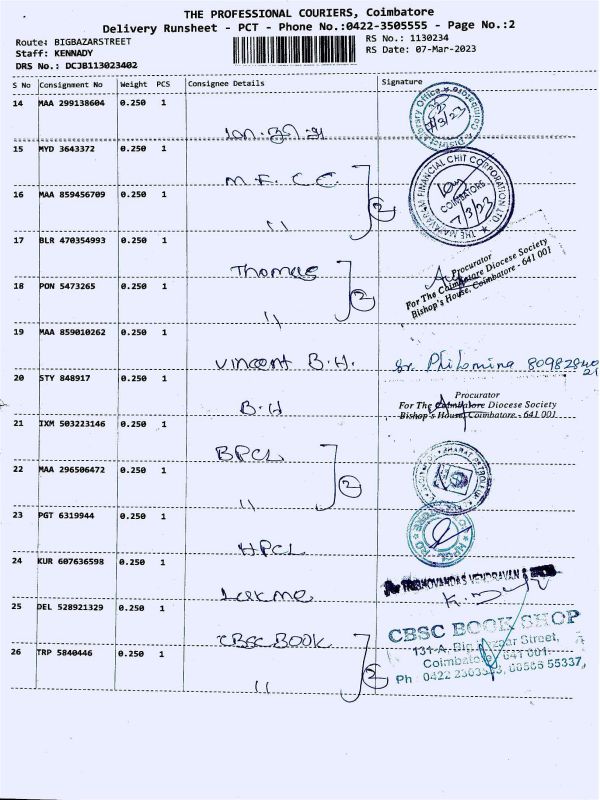 THE PROFESSIONAL COURIERS, Coimbatore
Delivery Runsheet - PCT - Phone No.:0422-3505555 - Page No.:2
Route: BIGBAZARSTREET
RS No.: 1130234
Staff: KENNADY
RS Date: 07-Mar-2023
DRS No.: DCJB113023402
S No Consignment No Weight PCS Consignee Details Signature
14 MAA 299138604 0.250 1
15 MYD 3643372 0.250 1 M.F.C.C
16 MAA 859456709 0.250 1 "
2
THE MAYAVARAM FINANCIAL CHIT CORPORATION LTD.
COIMBATORE
7/3/23
17 BLR 470354993 0.250 1 Thomas
18 PON 5473265 0.250 1 "
2
Procurator
For The Coimbatore Diocese Society
Bishop's House, Coimbatore - 641 001
19 MAA 859010262 0.250 1 Vincent B.H. Sr. Philomina
20 STY 848917 0.250 1 B.H
Procurator
For The Coimbatore Diocese Society
Bishop's House, Coimbatore - 641 001
21 IXM 503223146 0.250 1 BPCL
22 MAA 296506472 0.250 1 "
2
BHARAT PETROLEUM
23 PGT 6319944 0.250 1 HPCL
24 KUR 607636598 0.250 1
25 DEL 528921329 0.250 1 CBSC BOOK
26 TRP 5840446 0.250 1 "
2
CBSC BOOK SHOP
131-A, Big Bazaar Street,
Coimbatore - 641 001.